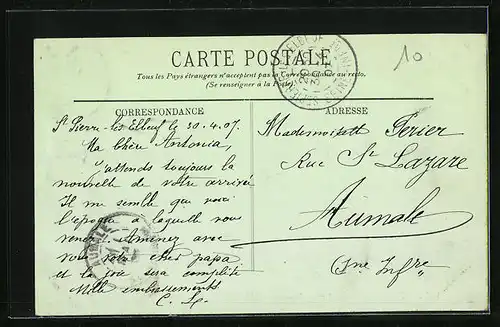 10
CARTE POSTALE
Tous les Pays étrangers n'acceptent pas la Correspondance au recto.
(Se renseigner à la Poste)
CORRESPONDANCE
St Pierre-lès-Elbeuf le 30.4.07.
Ma chère Antonia,
J'attends toujours la
nouvelle de votre arrivée
Il me semble que voici
l'époque à laquelle vous
venez. Amenez avec
vous votre cher papa
et la joie sera complète
Mille embrassements
ADRESSE
Mademoiselle Perier
Rue St Lazare
Aumale
Sne Infre
AUMALE